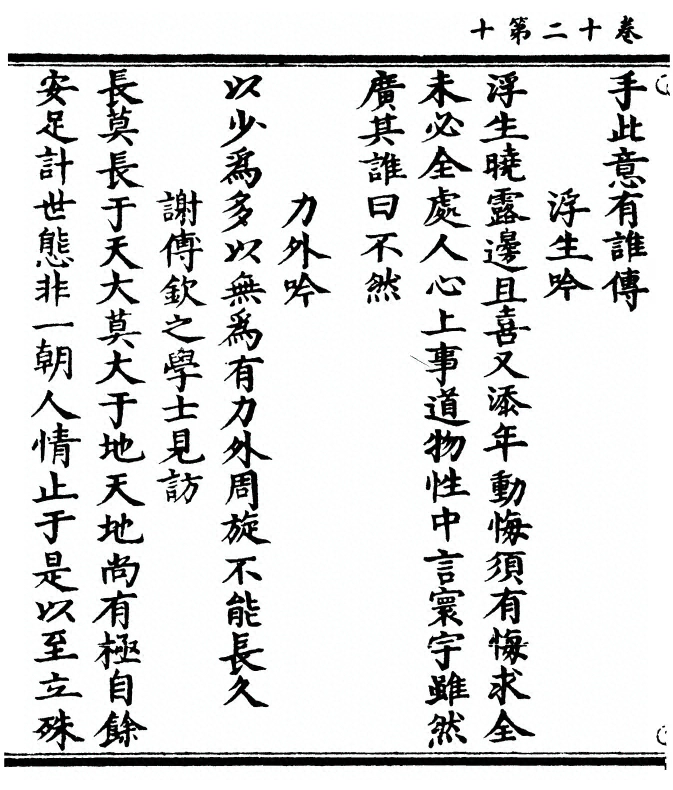 卷十二第十
手此意有誰傳
浮生吟
浮生曉露邊且喜又添年動悔須有悔求全
未必全處人心上事道物性中言寰宇雖然
廣其誰曰不然
力外吟
以少爲多以無爲有力外周旋不能長久
謝傅欽之學士見訪
長莫長于天大莫大于地天地尚有極自餘
安足計世態非一朝人情止于是以至立殊